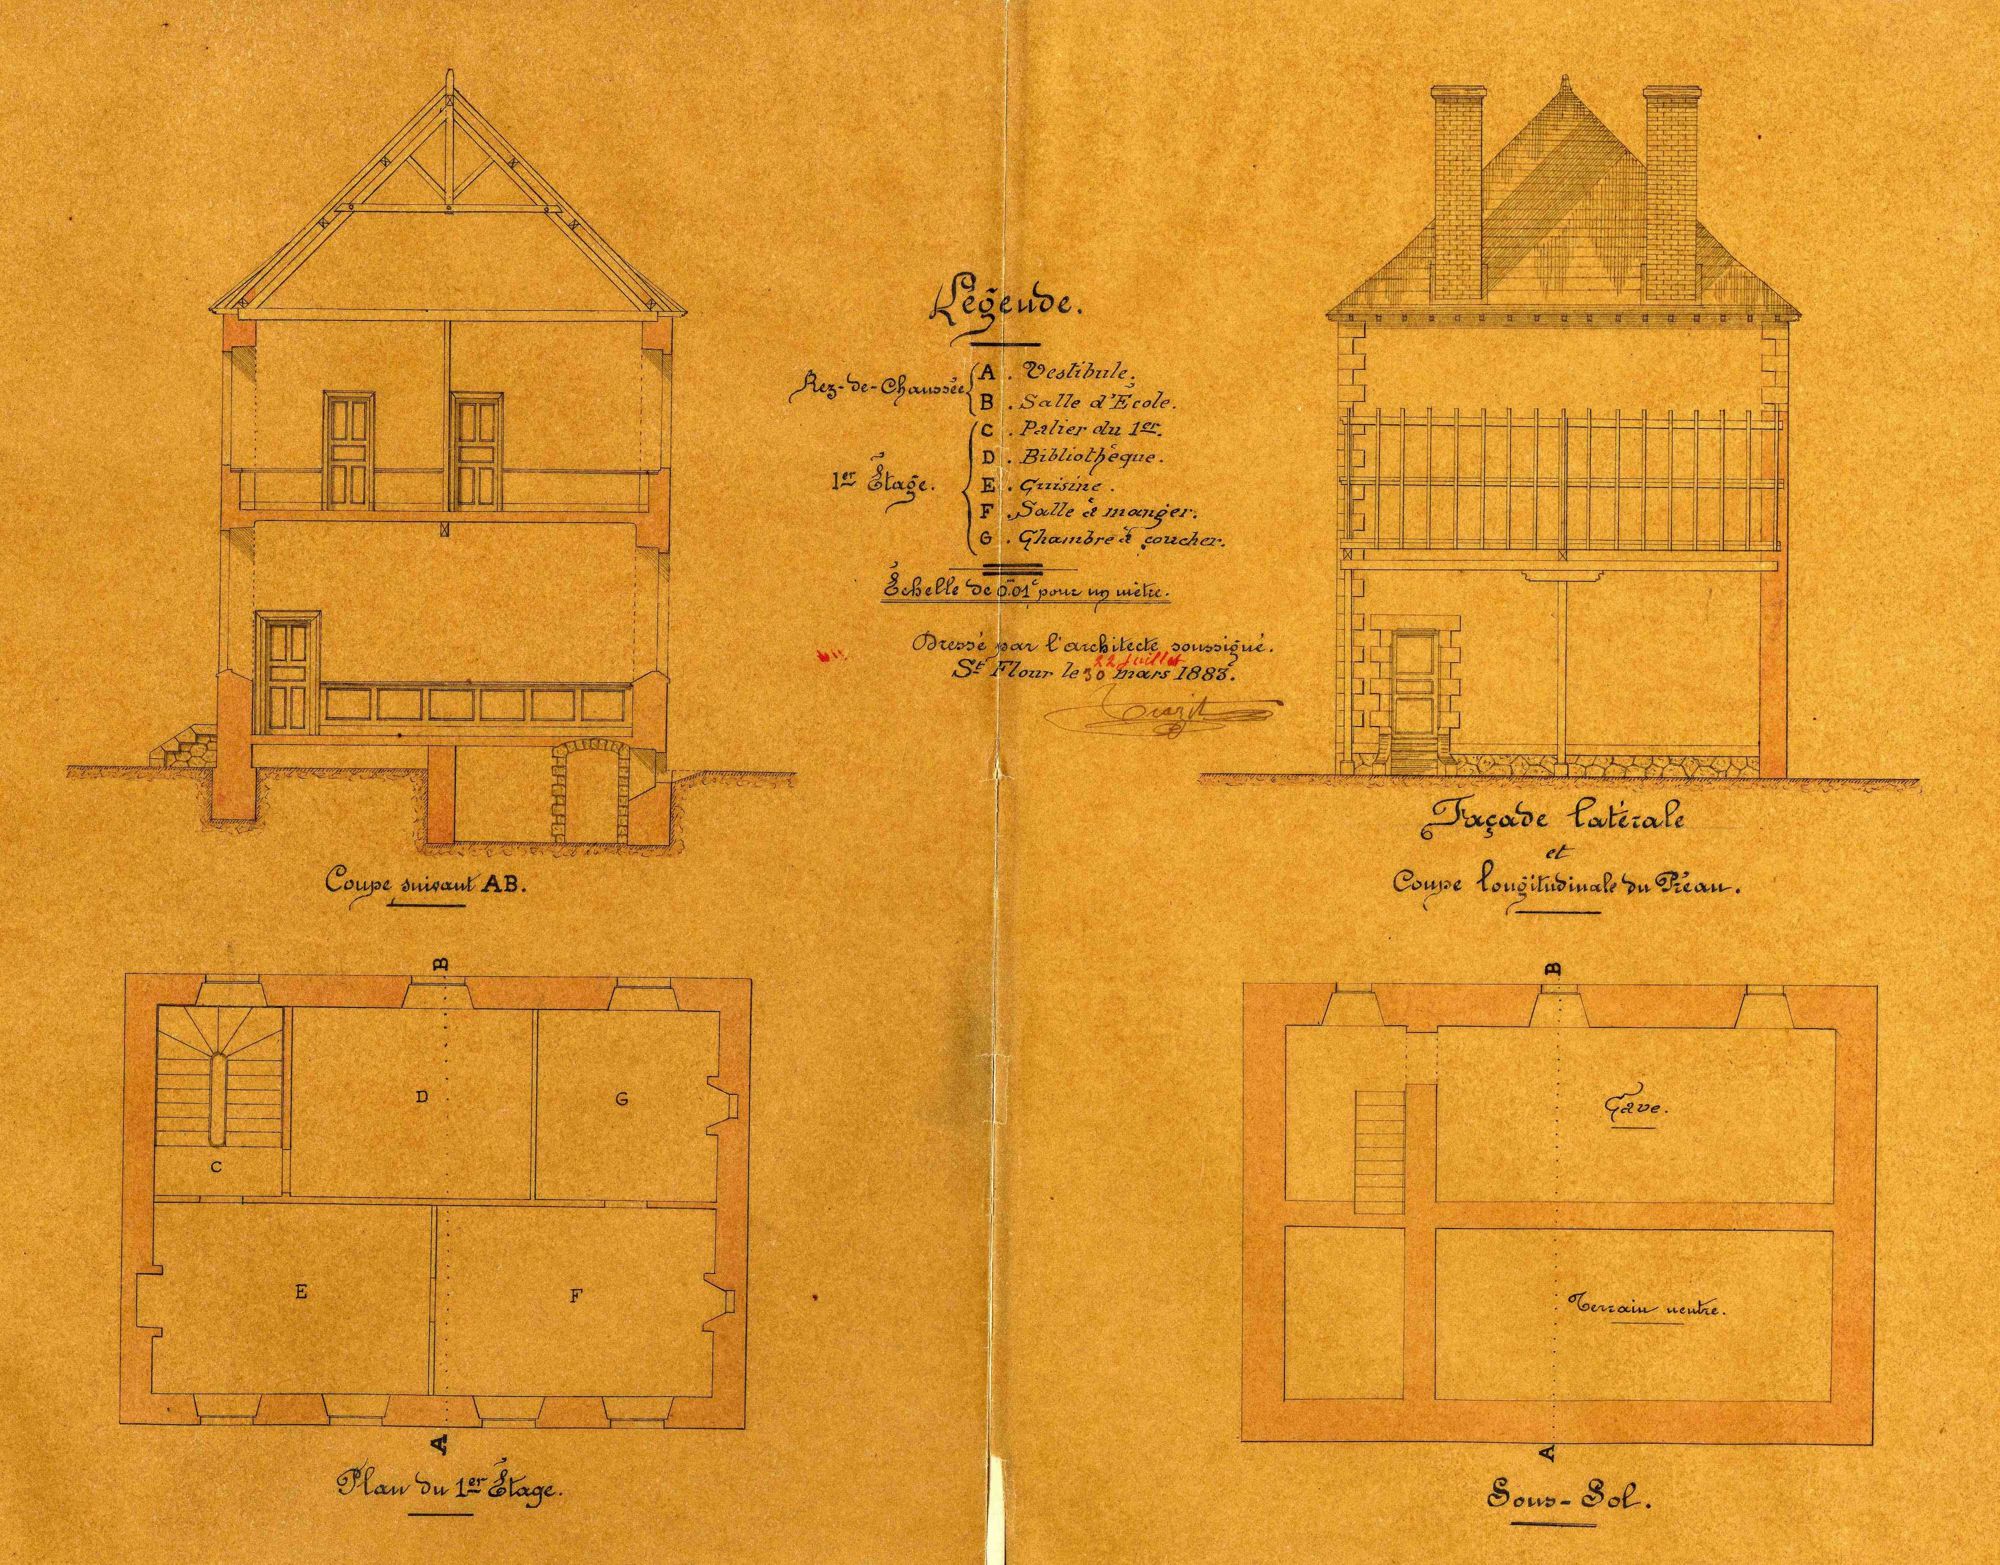 Légende.
Rez-de-Chaussée
A . Vestibule.
B . Salle d'École.
1er Étage.
C . Palier du 1er.
D . Bibliothèque.
E . Cuisine .
F . Salle à manger.
G . Chambre à coucher.
Échelle de 0.m01c pour un mètre.
Dressé par l'architecte soussigné.
22 Juillet
St Flour le 30 mars 1883.
Coupe suivant AB.
Façade latérale
et
Coupe longitudinale du Préau.
B
D
G
C
E
F
A
Plan du 1er Étage.
B
Cave.
Terrain neutre.
A
Sous-Sol.